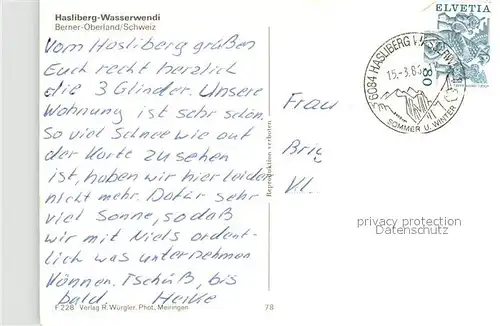 Hasliberg-Wasserwendi
Berner-Oberland/Schweiz
HELVETIA
80
6084 HASLIBERG WASSERWENDI
15.-3.83
SOMMER U. WINTER
Vom Hasliberg grüßen
Euch recht herzlich
die 3 Glinder. Unsere
Wohnung ist sehr schön.
So viel Schnee wie auf
der Karte zu sehen
ist, haben wir hier leider
nicht mehr. Dafür sehr
viel Sonne, so daß
wir mit Niels ordent-
lich was unternehmen
können. Tschüß, bis
bald Heike
Frau
Reproduktion verboten
privacy protection
Verlag R. Würgler, Phot. Meiringen
F 228
78